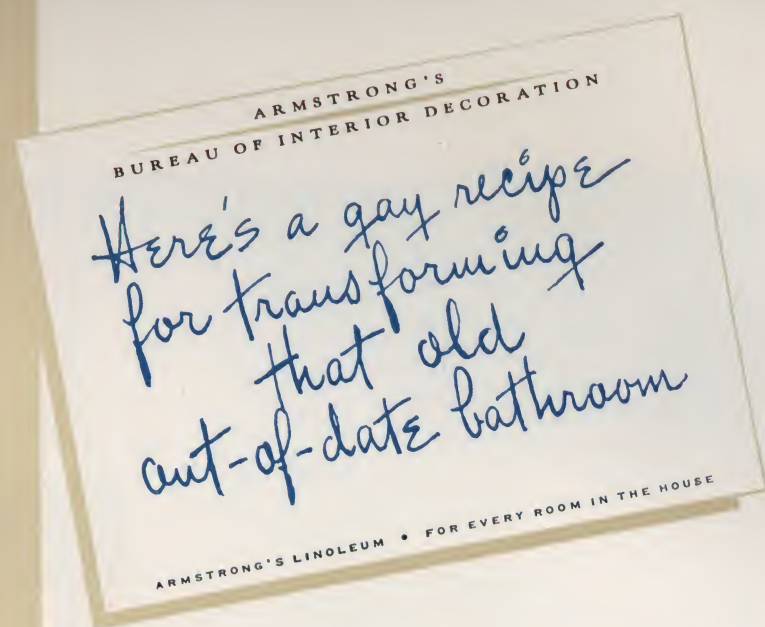 ARMSTRONG'S
BUREAU OF INTERIOR DECORATION
Here's a gay recipe
for transforming
that old
out-of-date bathroom
ARMSTRONG'S LINOLEUM • FOR EVERY ROOM IN THE HOUSE